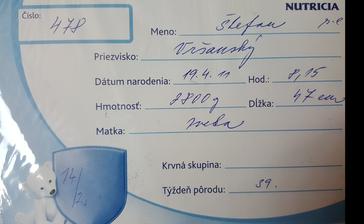 Číslo: 478
NUTRICIA
Meno: Štefan
Priezvisko: Vršanský
Dátum narodenia: 19.4.11 Hod.: 8,15
Hmotnosť: 2800g Dĺžka: 47 cm
Matka:
Krvná skupina:
Týždeň pôrodu: 39.
14/